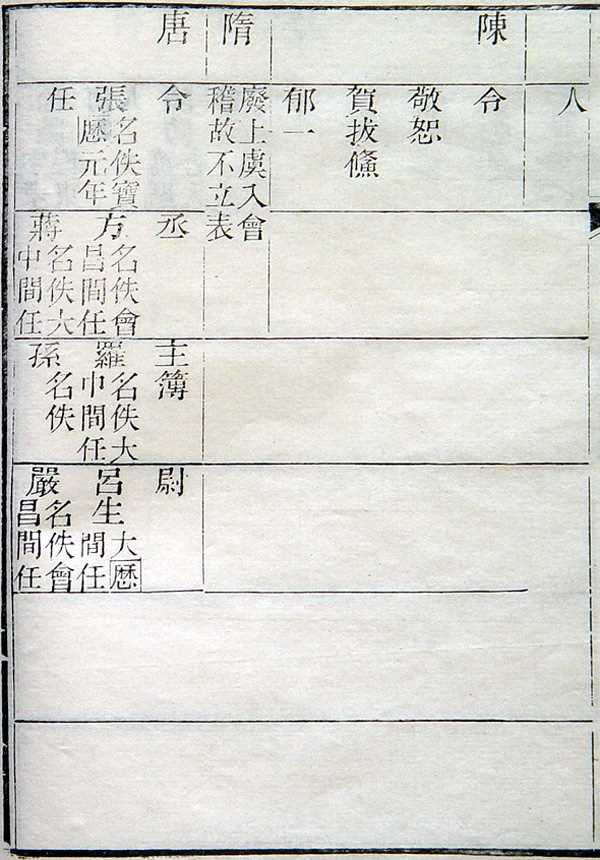 陳
人
令
敬恕
賀拔儵
郁一
隋
廢上虞入會
稽故不立表
唐
令
張名佚寶
厯元年
任
丞
方名佚會
昌間任
蔣名佚大
中間任
主簿
羅名佚大
中間任
孫名佚
尉
呂生大厯
間任
嚴名佚會
昌間任